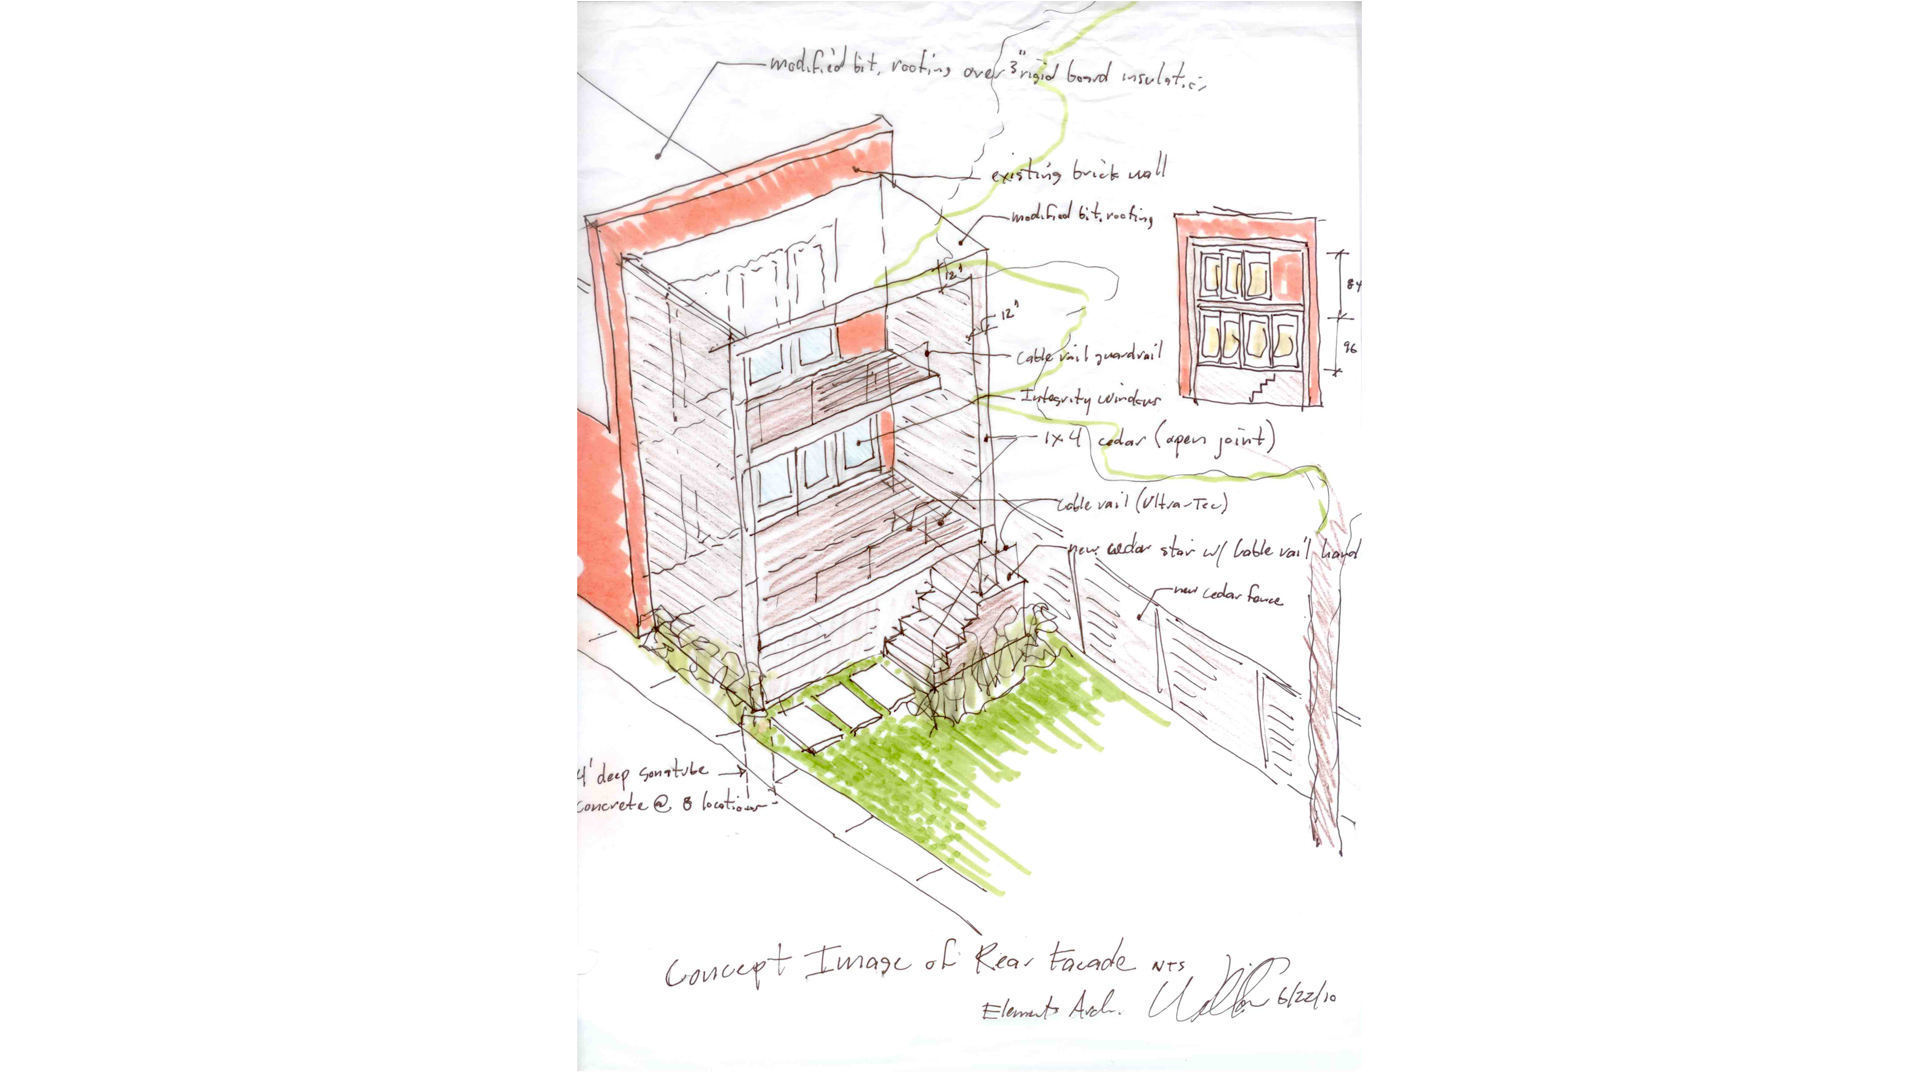 modified bit. roofing over 3" rigid board insulation
existing brick wall
modified bit. roofing
12"
84
12"
96
Cable rail guardrail
Integrity windows
1x4 cedar (open joint)
Cable rail (Ultra-Tec)
new cedar stair w/ Cable rail hand
new cedar fence
4' deep sonatube
concrete @ 8 locations
Concept Image of Rear Facade NTS
Elements Arch. 6/22/10